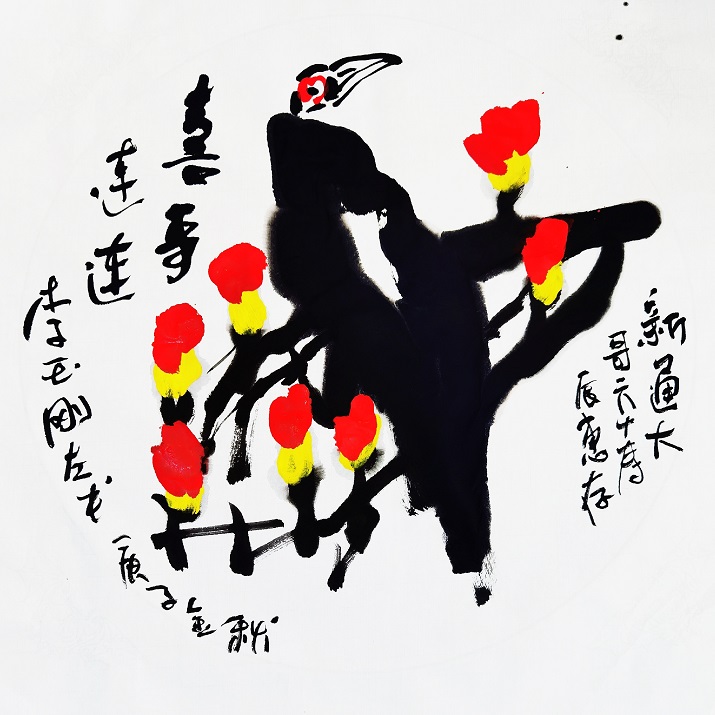 喜事
连连
李玉刚左书
庚子金秋
新通大
哥六十寿
辰惠存